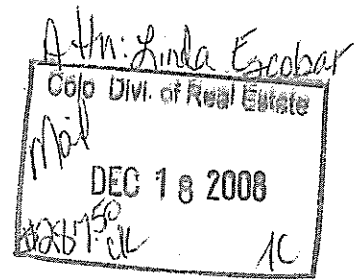 Attn: Linda Escobar
Colo Divi. of Real Estate
Mail
DEC 18 2008
$287.50
ck 1C